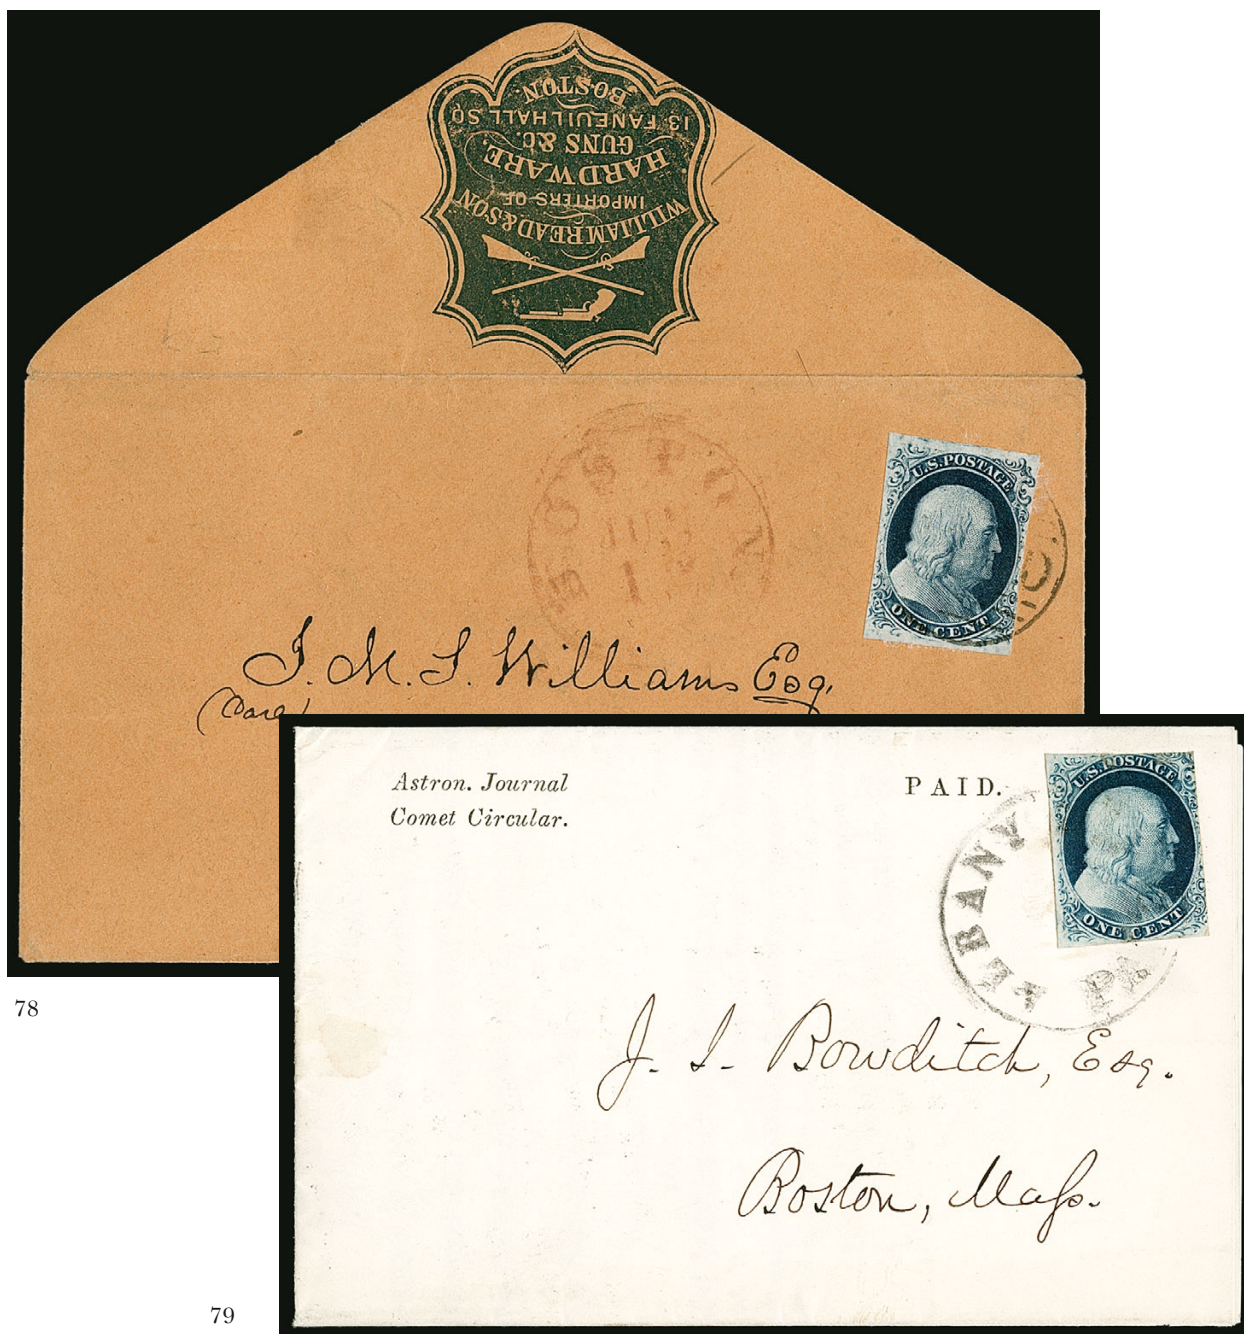 WILLIAM READ & SON
IMPORTERS OF
HARDWARE,
GUNS &C.
13 FANEUIL HALL SQ
BOSTON.
BOSTON
1
U.S. POSTAGE
ONE CENT
J. M. S. Williams Esq.
(Care
78
Astron. Journal
Comet Circular.
PAID.
U.S. POSTAGE
ONE CENT
ALBANY
PA
J. I. Bowditch, Esq.
Boston, Mass.
79